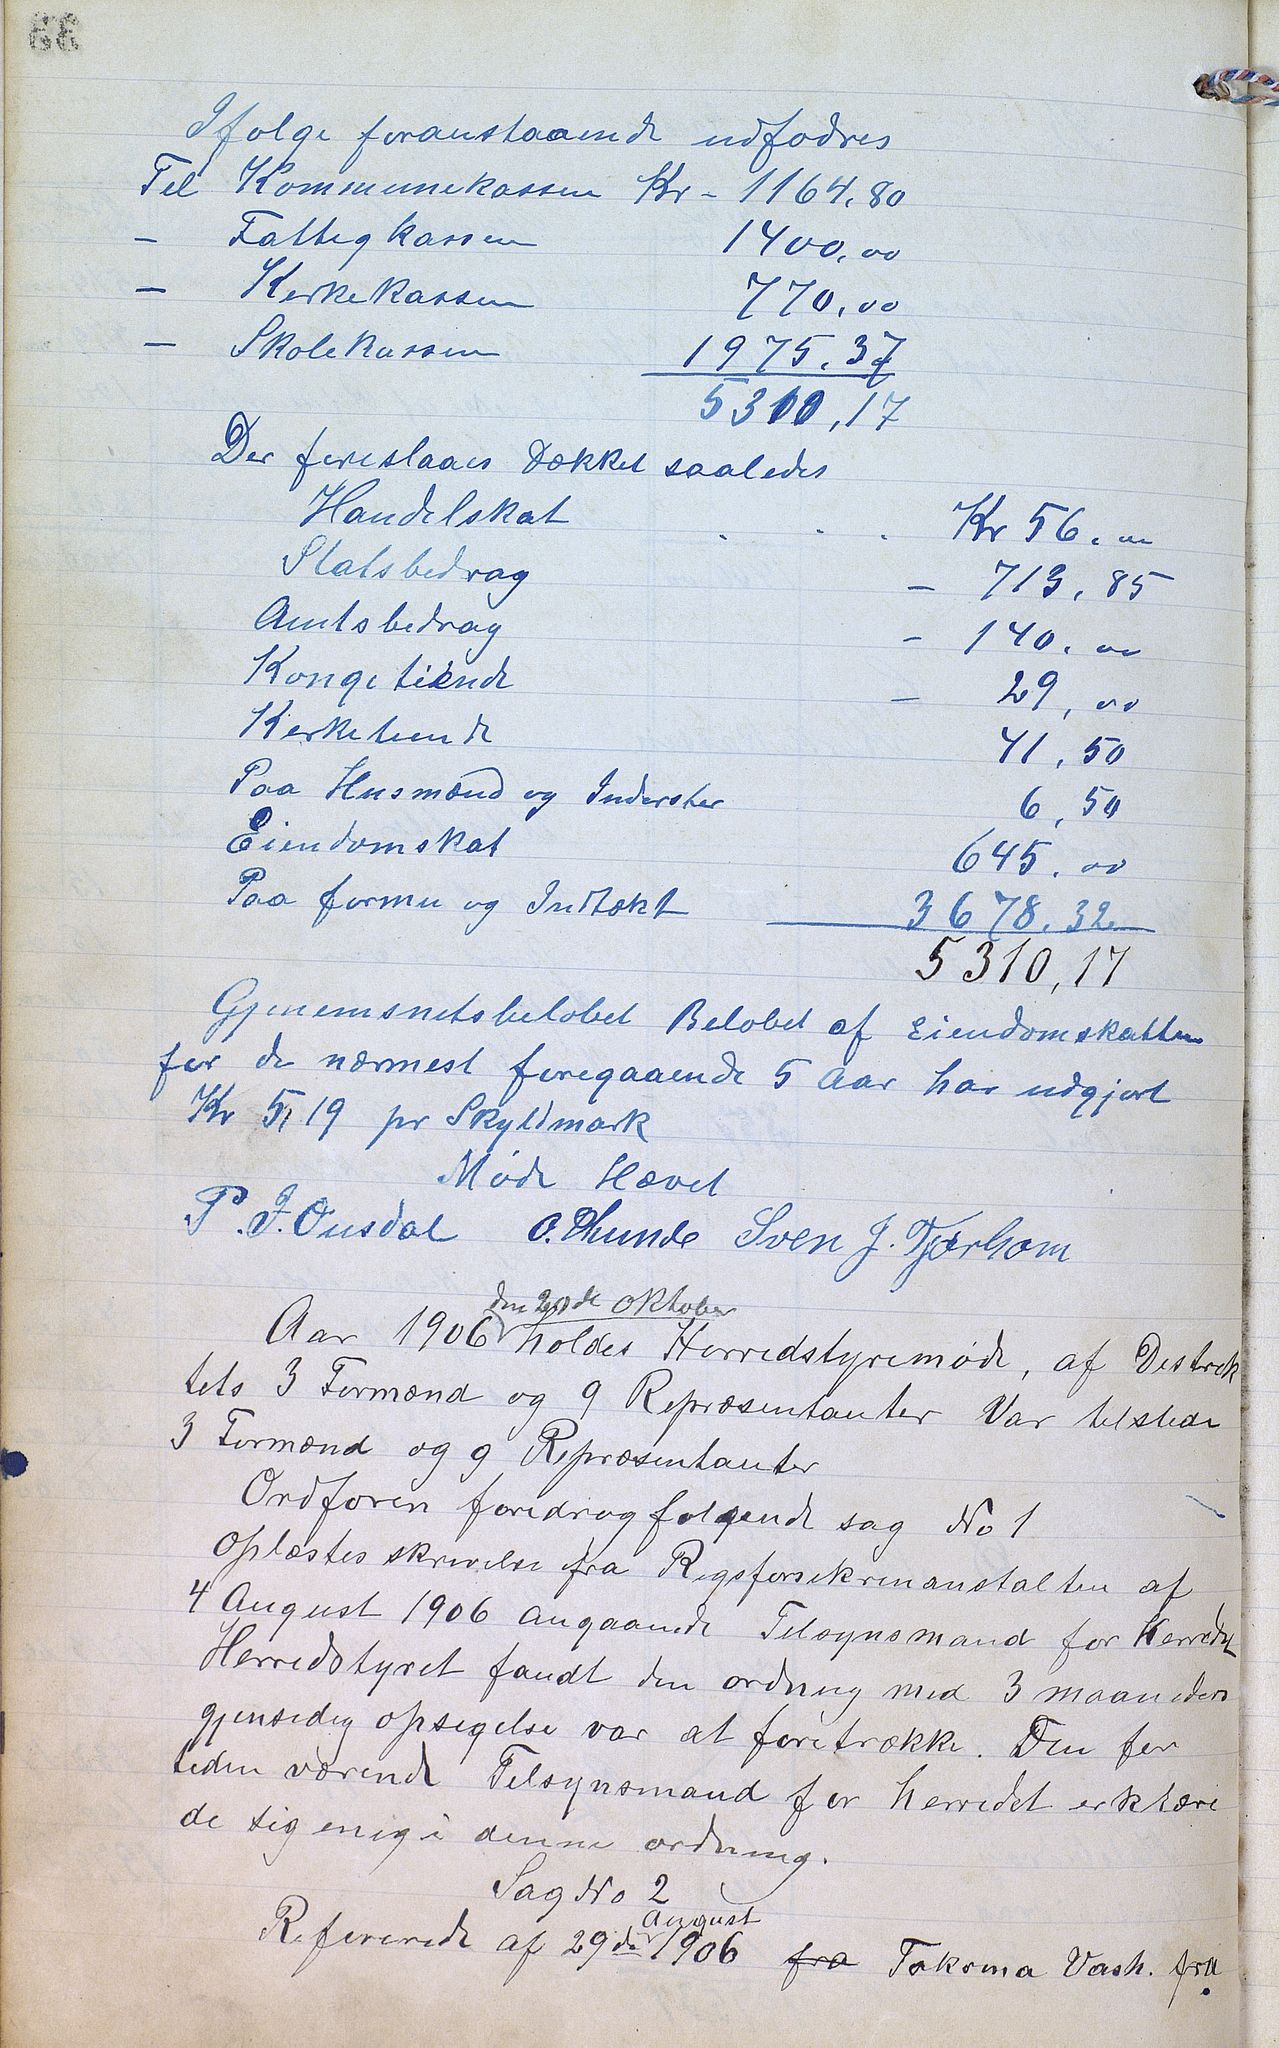 Ifølge foranstaaende udfodres
Til Kommunekassen Kr - 1164,80
- Fattigkassen 1400,00
- Kirkekassen 770,00
- Skolekassen 1975,37
5310,17
Der foreslaaes Dækket saaledes
Handelskat . . . Kr 56,00
Statsbedrag - 713,85
Amtsbedrag - 140,00
Kongetiende - 29,00
Kirketiende 41,50
Paa Husmænd og Inderster 6,50
Eiendomskat 645,00
Paa formu og Indtækt 3678,32
5310,17
Gjenemsnitsbeløbet Beløbet af Eiendomskatten
for de nærmest foregaaende 5 Aar har udgjort
Kr 5,19 pr Skyldmark
Møde Hævet
P. J. Ousdal O. Thunde Sven J. Tjørhom
den 20de oktober
Aar 1906 holdes Herredstyremøde, af Destrek
tets 3 Formænd og 9 Repræsentanter Var telstede
3 Formænd og 9 Repræsentanter
Ordføren foredrog følgende sag No 1
Oplæstes skrivelse fra Rigsforsikrinanstalten af
4 August 1906 angaaende Tilsynsmand for Herredet
Herredstyret fandt den ordning med 3 maaneders
gjensidig opsigelse var at foretrække. Den for
tiden værende Tilsynsmand for herredet erklære
de sig enig i denne ordning.
Sag No 2
August
Refererede af 29de 1906 fra Takoma Vash. fra